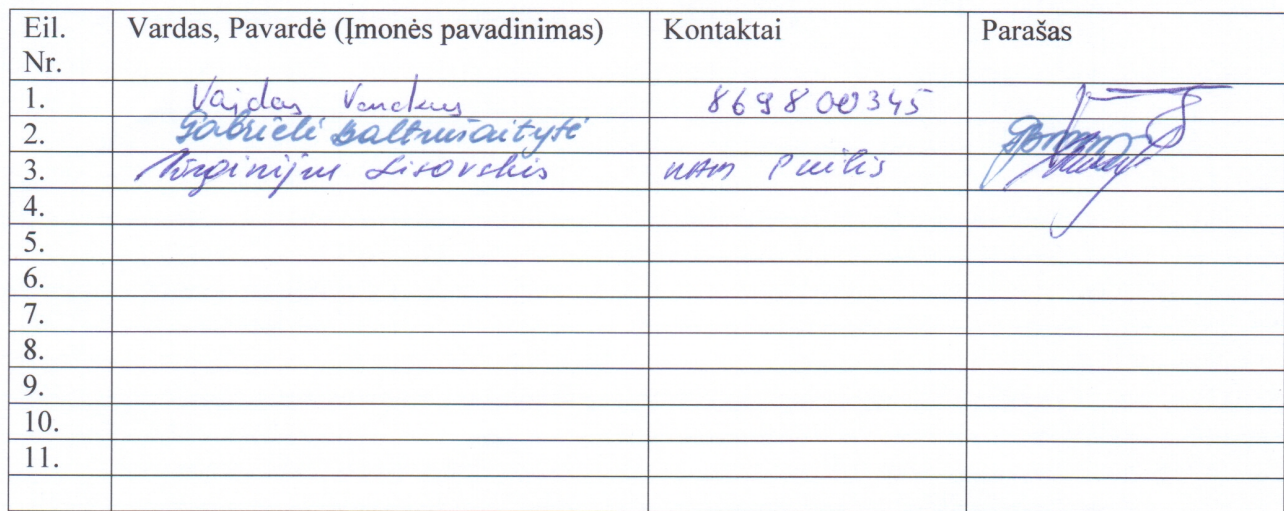 Eil. Nr. Vardas, Pavardė (Įmonės pavadinimas) Kontaktai Parašas
1. Vaidas 869800345
2. Gabrielė Baltrušaitytė
3. Virginijus Lisovskis
4.
5.
6.
7.
8.
9.
10.
11.